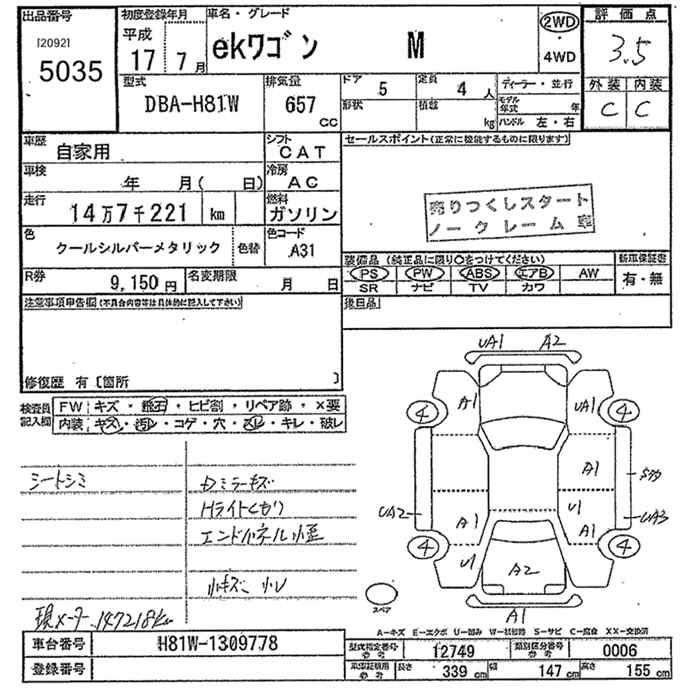 出品番号
I20921
5035
初度登録年月
平成
17 7月
車名・グレード
ekワゴン M
2WD
4WD
評価点
3.5
外装 内装
C C
型式
DBA-H81W
排気量
657
CC
ドア 5
形状
定員 4 人
積載
kg
ディーラー・並行
モデル年式 年
ハンドル 左・右
車歴
自家用
シフト
CAT
車検
年 月( 日)
冷房
AC
走行
14万7千221 km
燃料
ガソリン
色
クールシルバーメタリック
色替
色コード
A31
R券
9,150円
名変期限
月 日
セールスポイント(正常に機能するものに限ります)
売りつくしスタート
ノークレーム車
装備品(純正品に限り○をつけてください)
PS PW ABS エアB AW
SR ナビ TV カワ
新車保証書
有・無
後日品
注意事項申告欄(不具合内容等は具体的に記入して下さい)
修復歴 有〔箇所 〕
検査員記入欄
FW キズ・飛石・ヒビ割・リペア跡・×要
内装 キズ・汚レ・コゲ・穴・スレ・キレ・破レ
シートシミ
Dミラーキズ
Hライトくもり
エンドパネル小歪
小キズ 小凹
現メーター147218km
UA1 A2
A1 UA1
4 4
A1 S73
UA2 A1 U1 A1 UA3
4 4
U1 A2
A1
スペア
A-キズ E-エクボ U-凹み W-波 S-サビ C-腐食 XX-交換済
車台番号
H81W-1309778
登録番号
型式指定番号 参考
12749
類別区分番号 参考
0006
車体証明用 参考
長さ 339 cm 幅 147 cm 高さ 155 cm